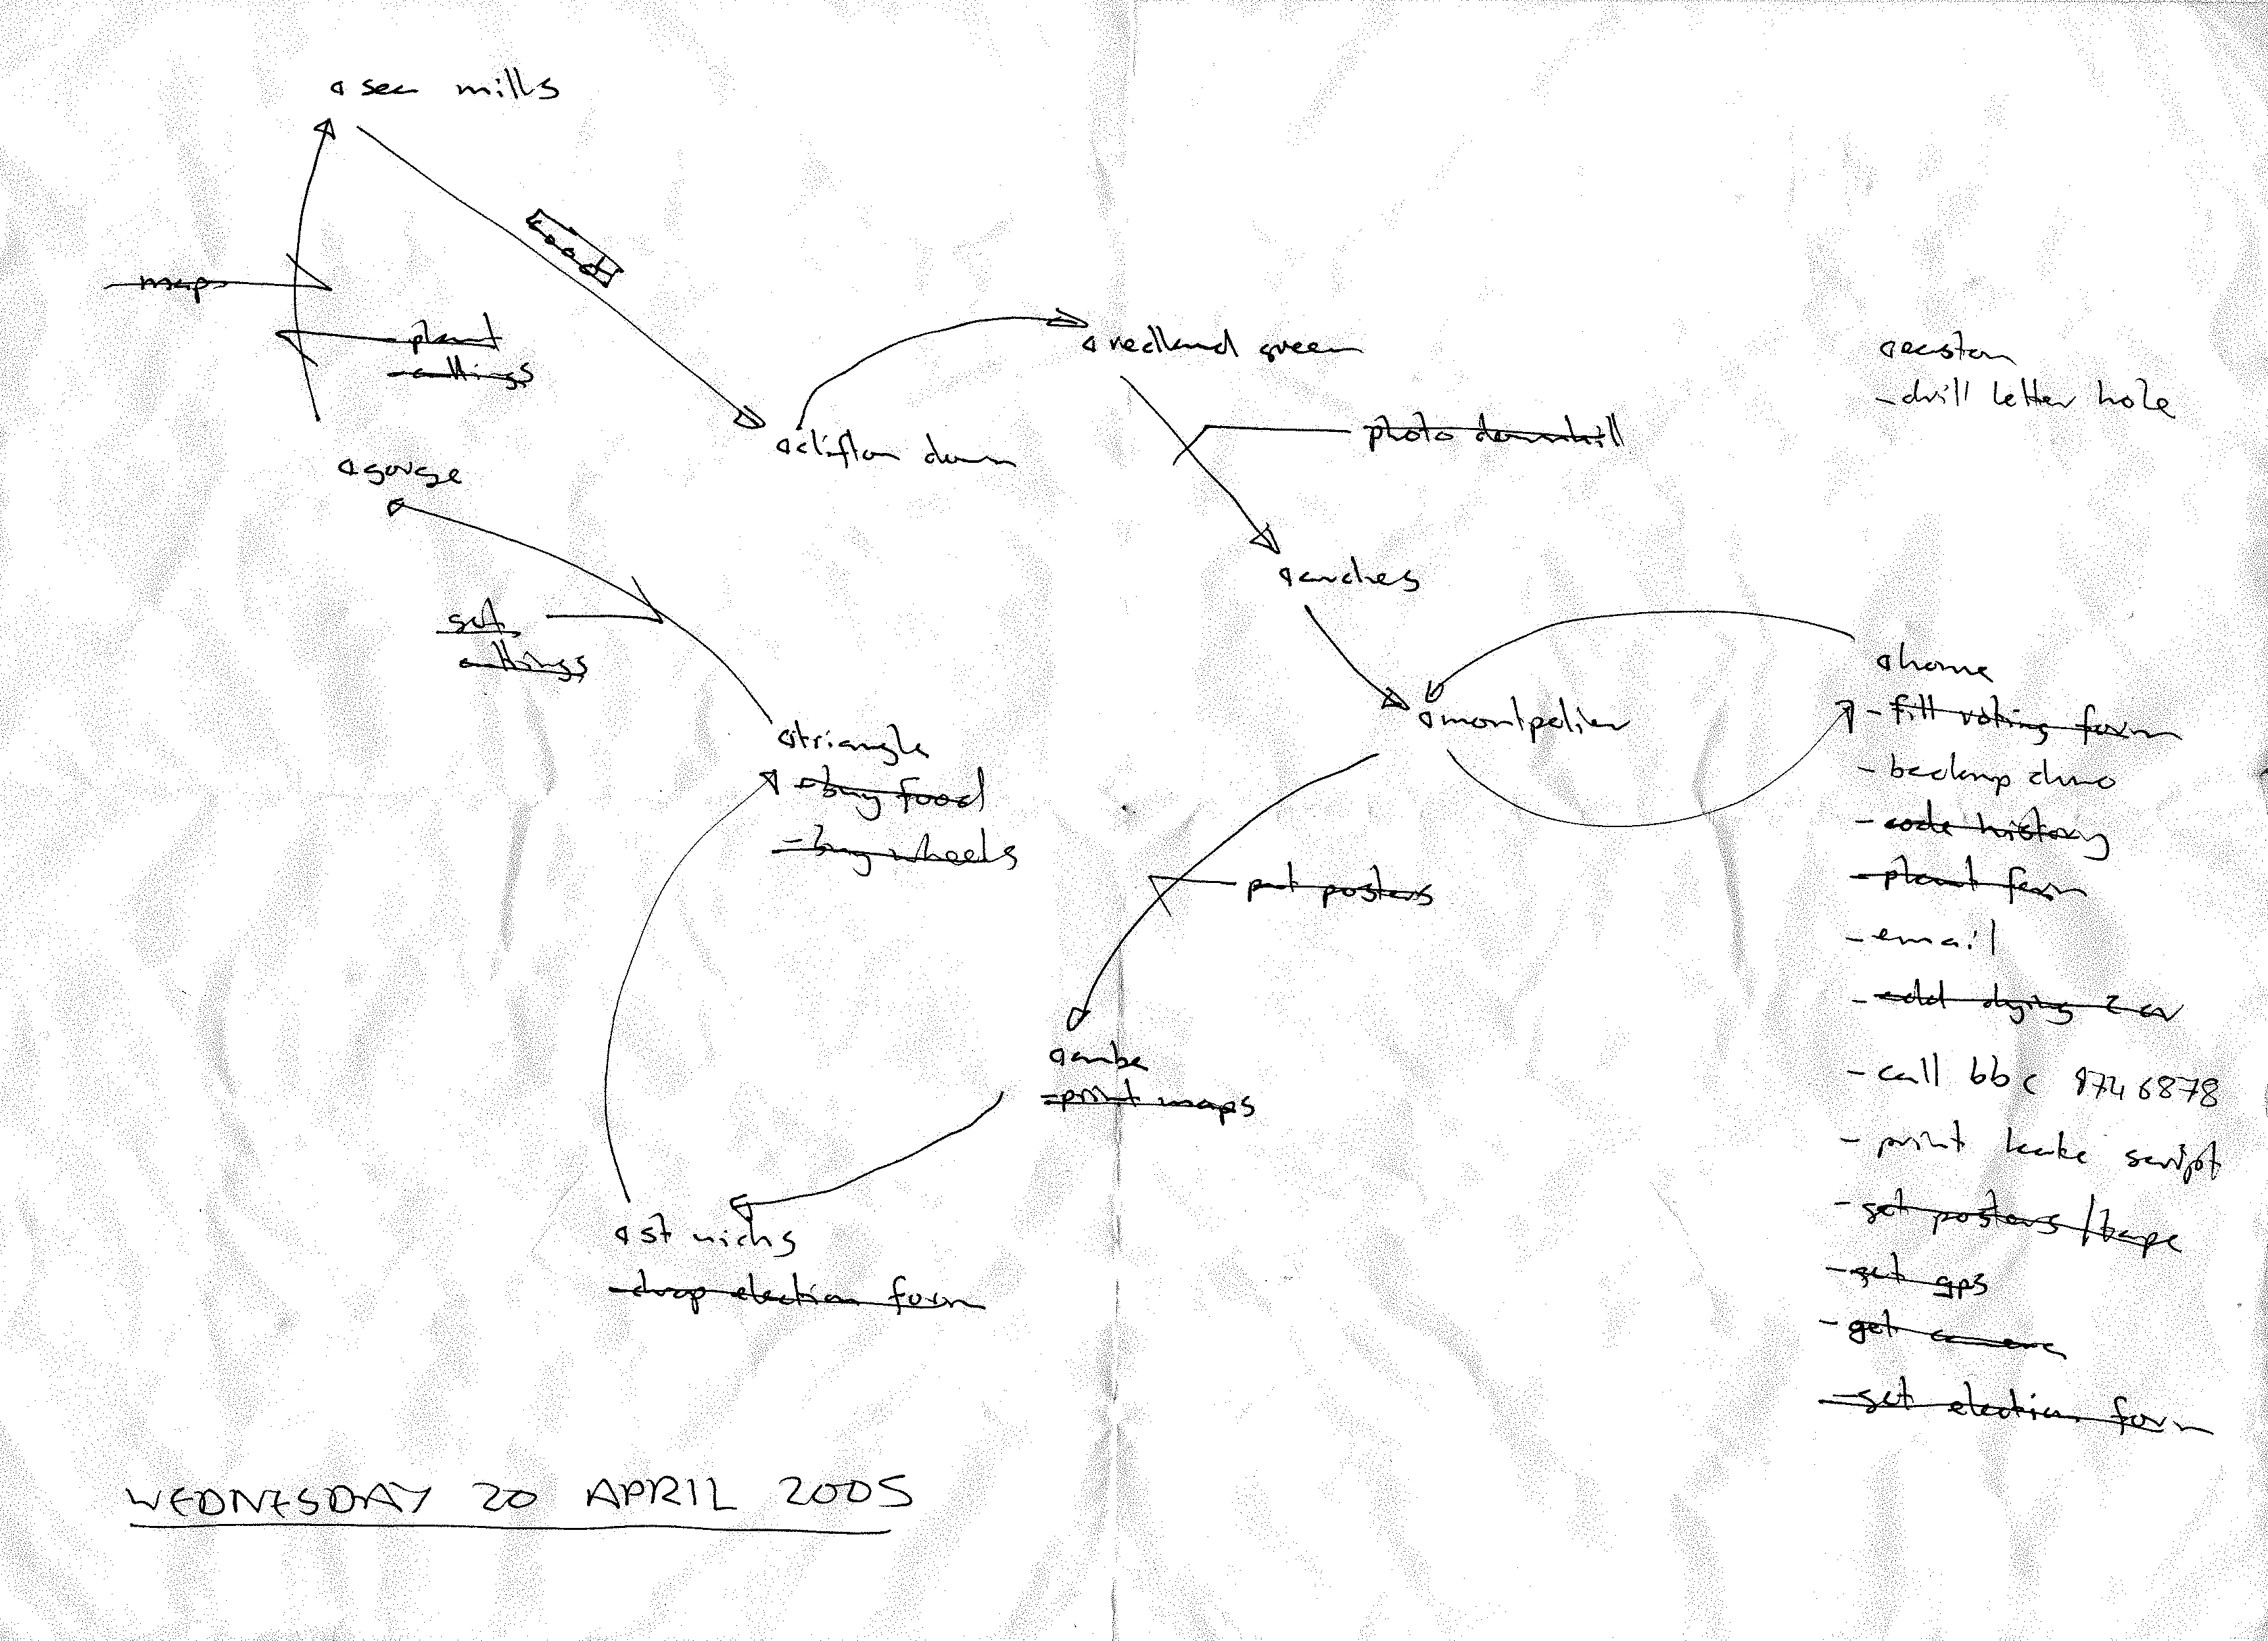 @sea mills
food
map
plant
cuttings
@redland green
@easton
- drill letter hole
photo downhill
@clifton down
@gorge
@arches
get
cuttings
@home
- fill voting form
- backup
- code history
- plant fern
- email
- add dying 2 cv
- call bbc 9746878
- print script
- get posters/tape
- get gps
- get camera
- get election form
@montpelier
@triangle
- buy food
- buy wheels
put posters
@cube
- print maps
@st nichs
- drop election form
WEDNESDAY 20 APRIL 2005